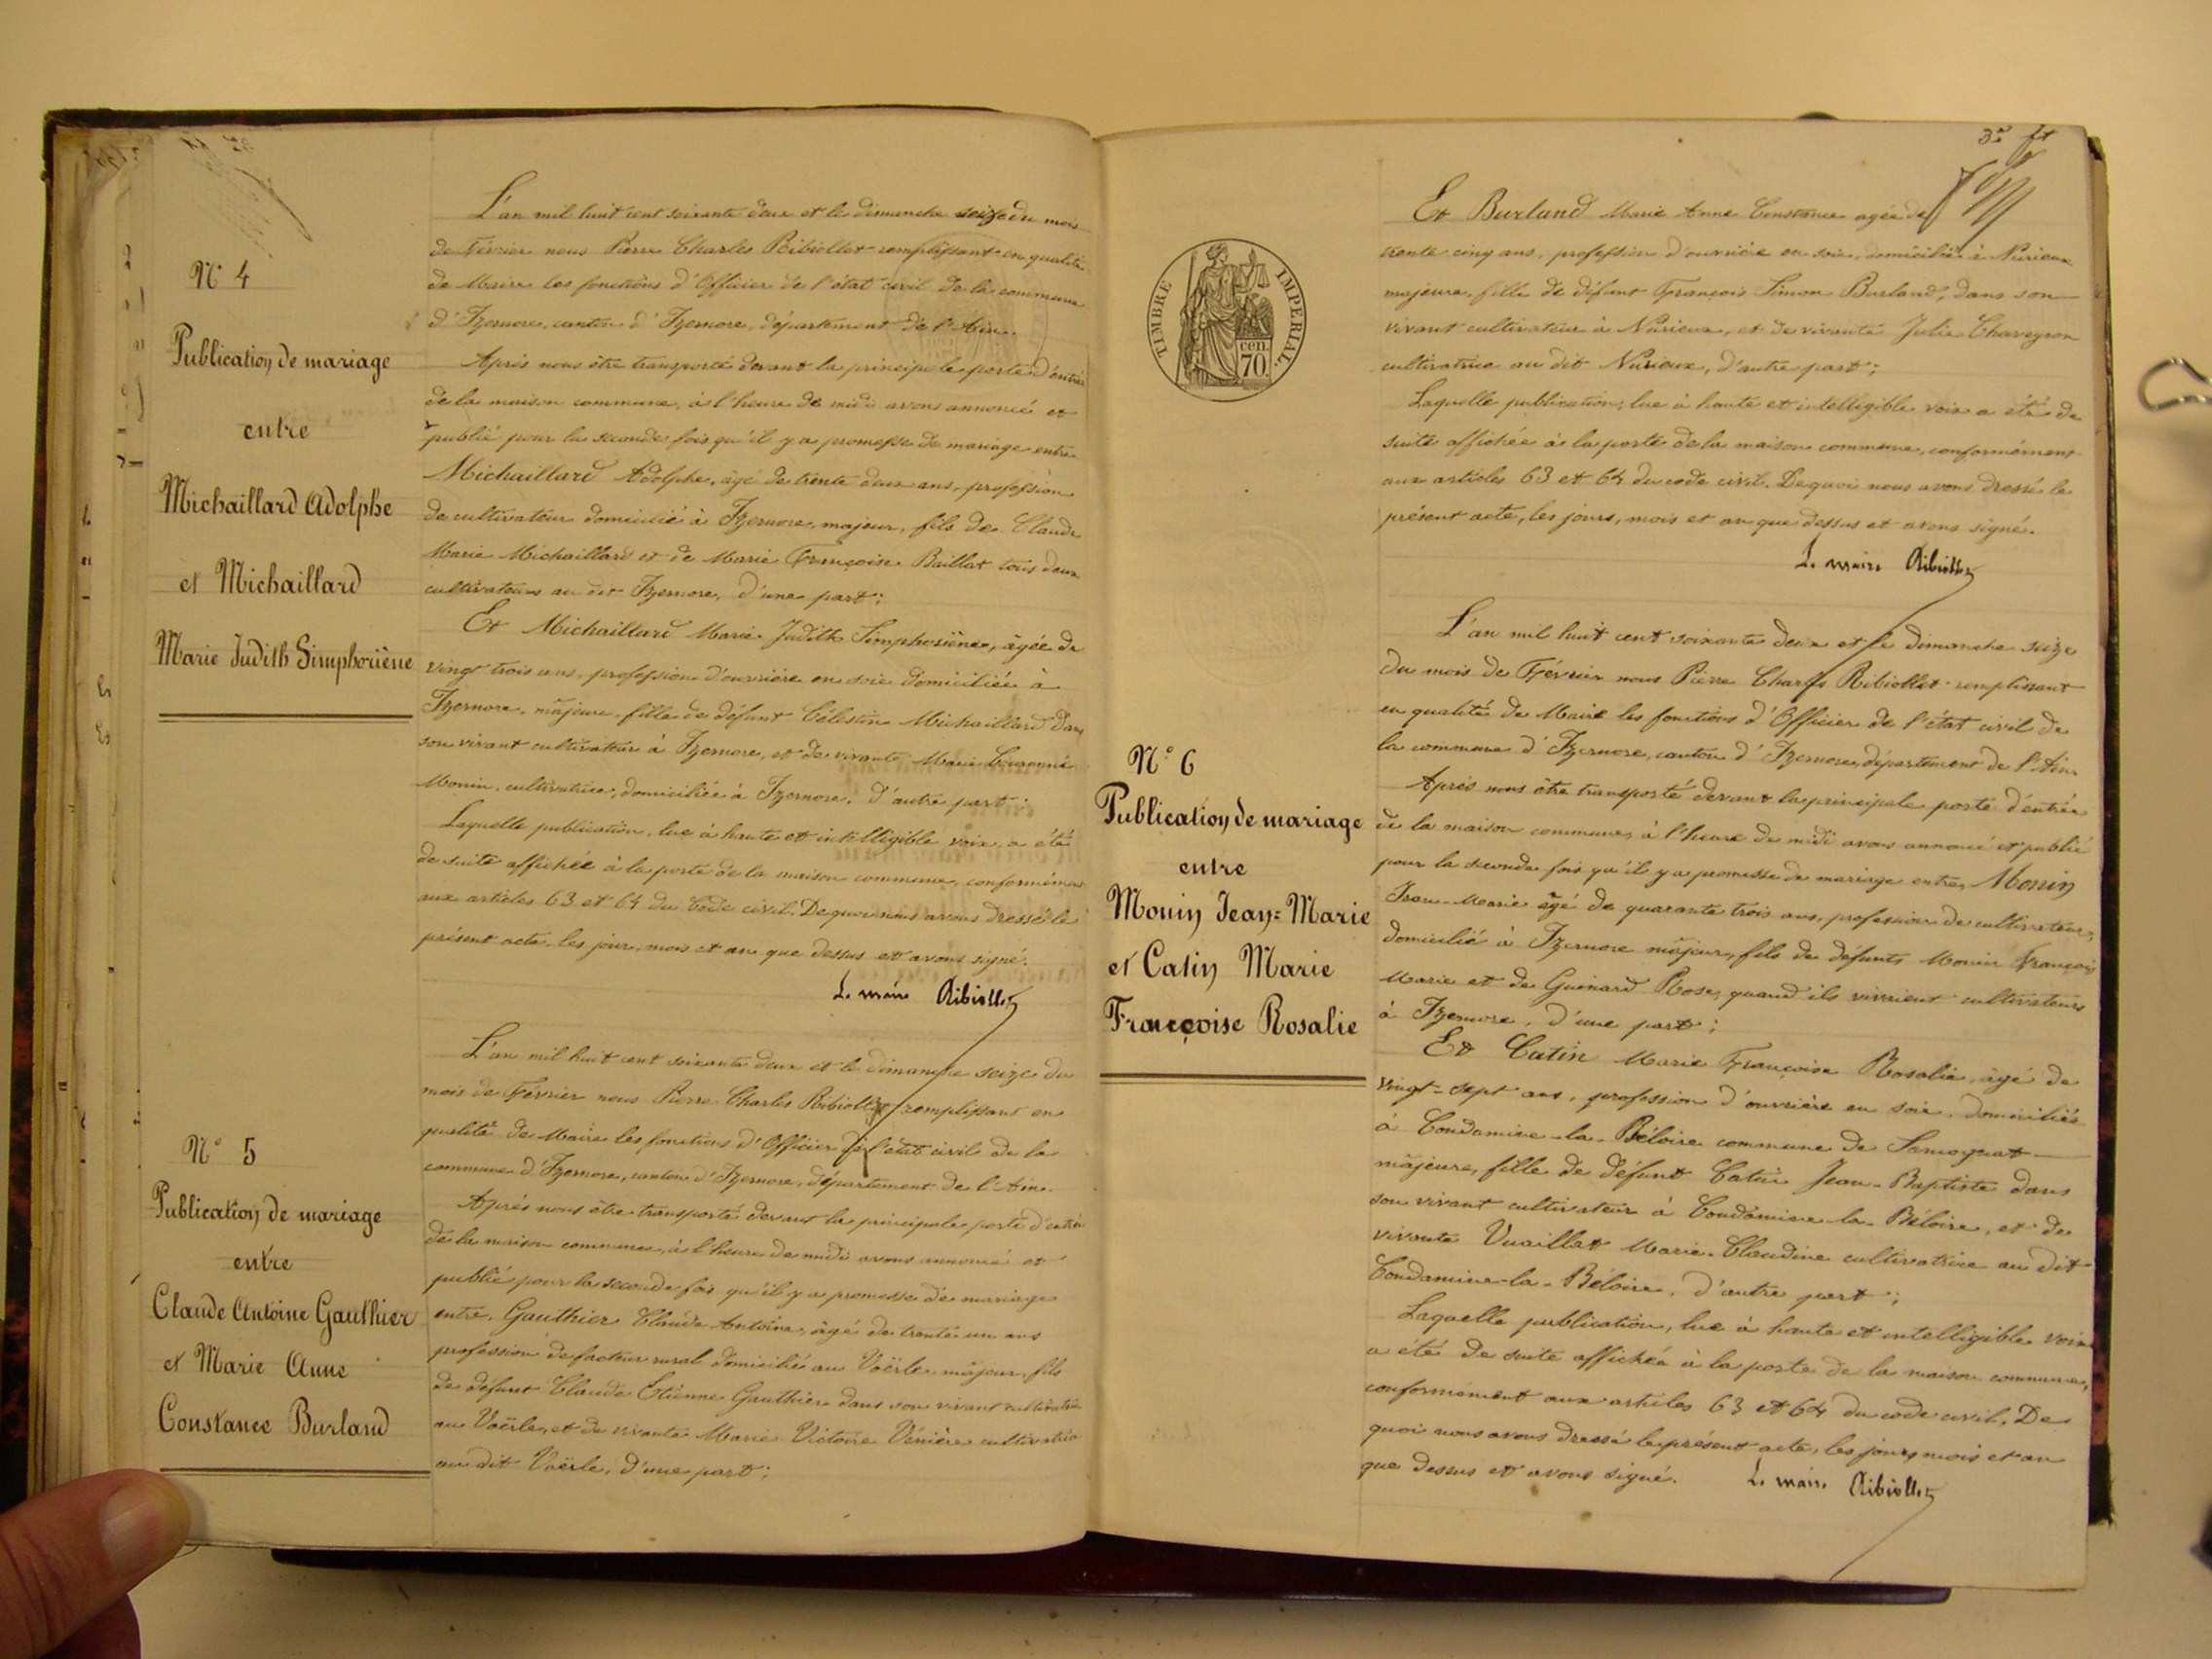 N° 4
Publication de mariage
entre
Michaillard Adolphe
et Michaillard
Marie Judith Simphoriène
L'an mil huit cent soixante deux et le dimanche seize du mois
de Février nous Pierre Charles Ribiollet remplissant en qualité
de Maire les fonctions d'Officier de l'état civil de la commune
d'Izernore, canton d'Izernore, département de l'Ain.
Après nous être transporté devant la principale porte d'entrée
de la maison commune, à l'heure de midi avons annoncé et
publié pour la seconde fois qu'il y a promesse de mariage entre
Michaillard Adolphe, âgé de trente deux ans, profession
de cultivateur domicilié à Izernore, majeur, fils de Claude
Marie Michaillard et de Marie Françoise Baillat tous deux
cultivateurs au dit Izernore, d'une part;
Et Michaillard Marie Judith Simphoriène, âgée de
vingt trois ans, profession d'ouvrière en soie domiciliée à
Izernore, majeure, fille de défunt Célestin Michaillard dans
son vivant cultivateur à Izernore, et de vivante Marie
Monin, cultivatrice, domiciliée à Izernore, d'autre part;
Laquelle publication, lue à haute et intelligible voix, a été
de suite affichée à la porte de la maison commune, conformément
aux articles 63 et 64 du Code civil. De quoi nous avons dressé le
présent acte, les jour, mois et an que dessus et avons signé.
Le maire Ribiollet
N° 5
Publication de mariage
entre
Claude Antoine Gauthier
et Marie Anne
Constance Burland
L'an mil huit cent soixante deux et le dimanche seize du
mois de Février nous Pierre Charles Ribiollet remplissant en
qualité de Maire les fonctions d'Officier de l'état civil de la
commune d'Izernore, canton d'Izernore, département de l'Ain.
Après nous être transporté devant la principale porte d'entrée
de la maison commune, à l'heure de midi avons annoncé et
publié pour la seconde fois qu'il y a promesse de mariage
entre Gauthier Claude Antoine, âgé de trente un ans
profession de facteur rural domicilié au Voërle, majeur, fils
de défunt Claude Etienne Gauthier dans son vivant cultivateur
au Voërle, et de vivante Marie Victoire Vénière cultivatrice
au dit Voërle, d'une part;
3e ft
TIMBRE IMPERIAL.
cen.
70.
Et Burland Marie Anne Constance agée de
trente cinq ans, profession d'ouvrière en soie, domiciliée à Nurieux
majeure, fille de défunt François Simon Burland, dans son
vivant cultivateur à Nurieux, et de vivante Julie Chaveyron
cultivatrice au dit Nurieux, d'autre part;
Laquelle publication, lue à haute et intelligible voix a été de
suite affichée à la porte de la maison commune, conformément
aux articles 63 et 64 du code civil. De quoi nous avons dressé le
présent acte, les jours, mois et an que dessus et avons signé.
Le maire Ribiollet
N° 6
Publication de mariage
entre
Monin Jean=Marie
et Catin Marie
Françoise Rosalie
L'an mil huit cent soixante deux et le dimanche seize
du mois de Février nous Pierre Charles Ribiollet remplissant
en qualité de Maire les fonctions d'Officier de l'état civil de
la commune d'Izernore, canton d'Izernore, département de l'Ain
Après nous être transporté devant la principale porte d'entrée
de la maison commune, à l'heure de midi avons annoncé et publié
pour la seconde fois qu'il y a promesse de mariage entre, Monin
Jean-Marie âgé de quarante trois ans, profession de cultivateur,
domicilié à Izernore majeur, fils de défunts Monin François
Marie et de Guénard Rose, quand ils vivaient cultivateurs
à Izernore, d'une part;
Et Catin Marie Françoise Rosalie, âgé de
vingt-sept ans, profession d'ouvrière en soie, domiciliée
à Condamine-la-Béloire commune de Samognat
majeure, fille de défunt Catin Jean-Baptiste dans
son vivant cultivateur à Condamine-la-Béloire, et de
vivante Vuaillat Marie-Claudine cultivatrice au dit
Condamine-la-Béloire, d'autre part;
Laquelle publication, lue à haute et intelligible voix
a été de suite affichée à la porte de la maison commune,
conformément aux articles 63 et 64 du code civil. De
quoi nous avons dressé le présent acte, les jours, mois et an
que dessus et avons signé. Le maire Ribiollet